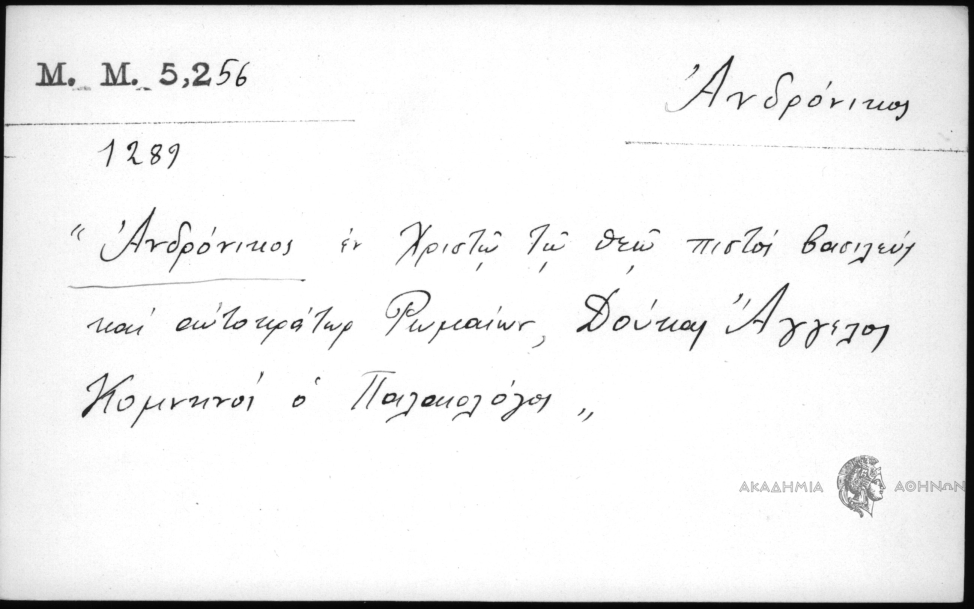 M. M. 5,256
Ἀνδρόνικος
1289
“Ἀνδρόνικος ἐν Χριστῷ τῷ θεῷ πιστὸς βασιλεὺς
καὶ αὐτοκράτωρ Ῥωμαίων, Δούκας Ἄγγελος
Κομνηνὸς ὁ Παλαιολόγος„
ΑΚΑΔΗΜΙΑ ΑΘΗΝΩΝ